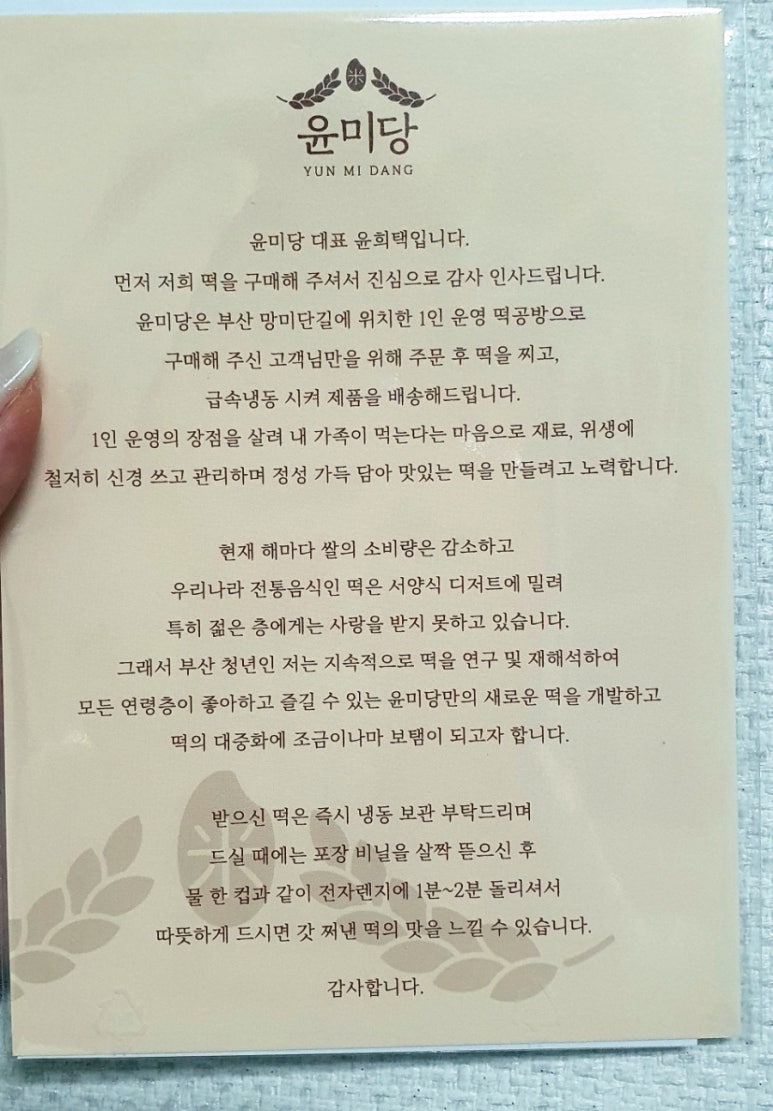 米
윤미당
YUN MI DANG
윤미당 대표 윤희택입니다.
먼저 저희 떡을 구매해 주셔서 진심으로 감사 인사드립니다.
윤미당은 부산 망미단길에 위치한 1인 운영 떡공방으로
구매해 주신 고객님만을 위해 주문 후 떡을 찌고,
급속냉동 시켜 제품을 배송해드립니다.
1인 운영의 장점을 살려 내 가족이 먹는다는 마음으로 재료, 위생에
철저히 신경 쓰고 관리하며 정성 가득 담아 맛있는 떡을 만들려고 노력합니다.
현재 해마다 쌀의 소비량은 감소하고
우리나라 전통음식인 떡은 서양식 디저트에 밀려
특히 젊은 층에게는 사랑을 받지 못하고 있습니다.
그래서 부산 청년인 저는 지속적으로 떡을 연구 및 재해석하여
모든 연령층이 좋아하고 즐길 수 있는 윤미당만의 새로운 떡을 개발하고
떡의 대중화에 조금이나마 보탬이 되고자 합니다.
받으신 떡은 즉시 냉동 보관 부탁드리며
드실 때에는 포장 비닐을 살짝 뜯으신 후
물 한 컵과 같이 전자렌지에 1분~2분 돌리셔서
따뜻하게 드시면 갓 쪄낸 떡의 맛을 느낄 수 있습니다.
감사합니다.
米